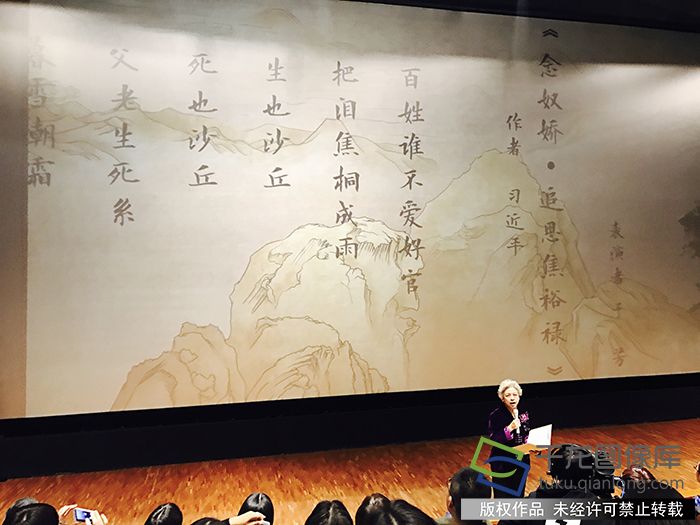 表演者 于 芳
《念奴娇•追思焦裕禄》
作者 习近平
百姓谁不爱好官
把泪焦桐成雨
生也沙丘
死也沙丘
父老生死系
暮雪朝霜
千龙图像库
tuku.qianlong.com
版权作品 未经许可禁止转载